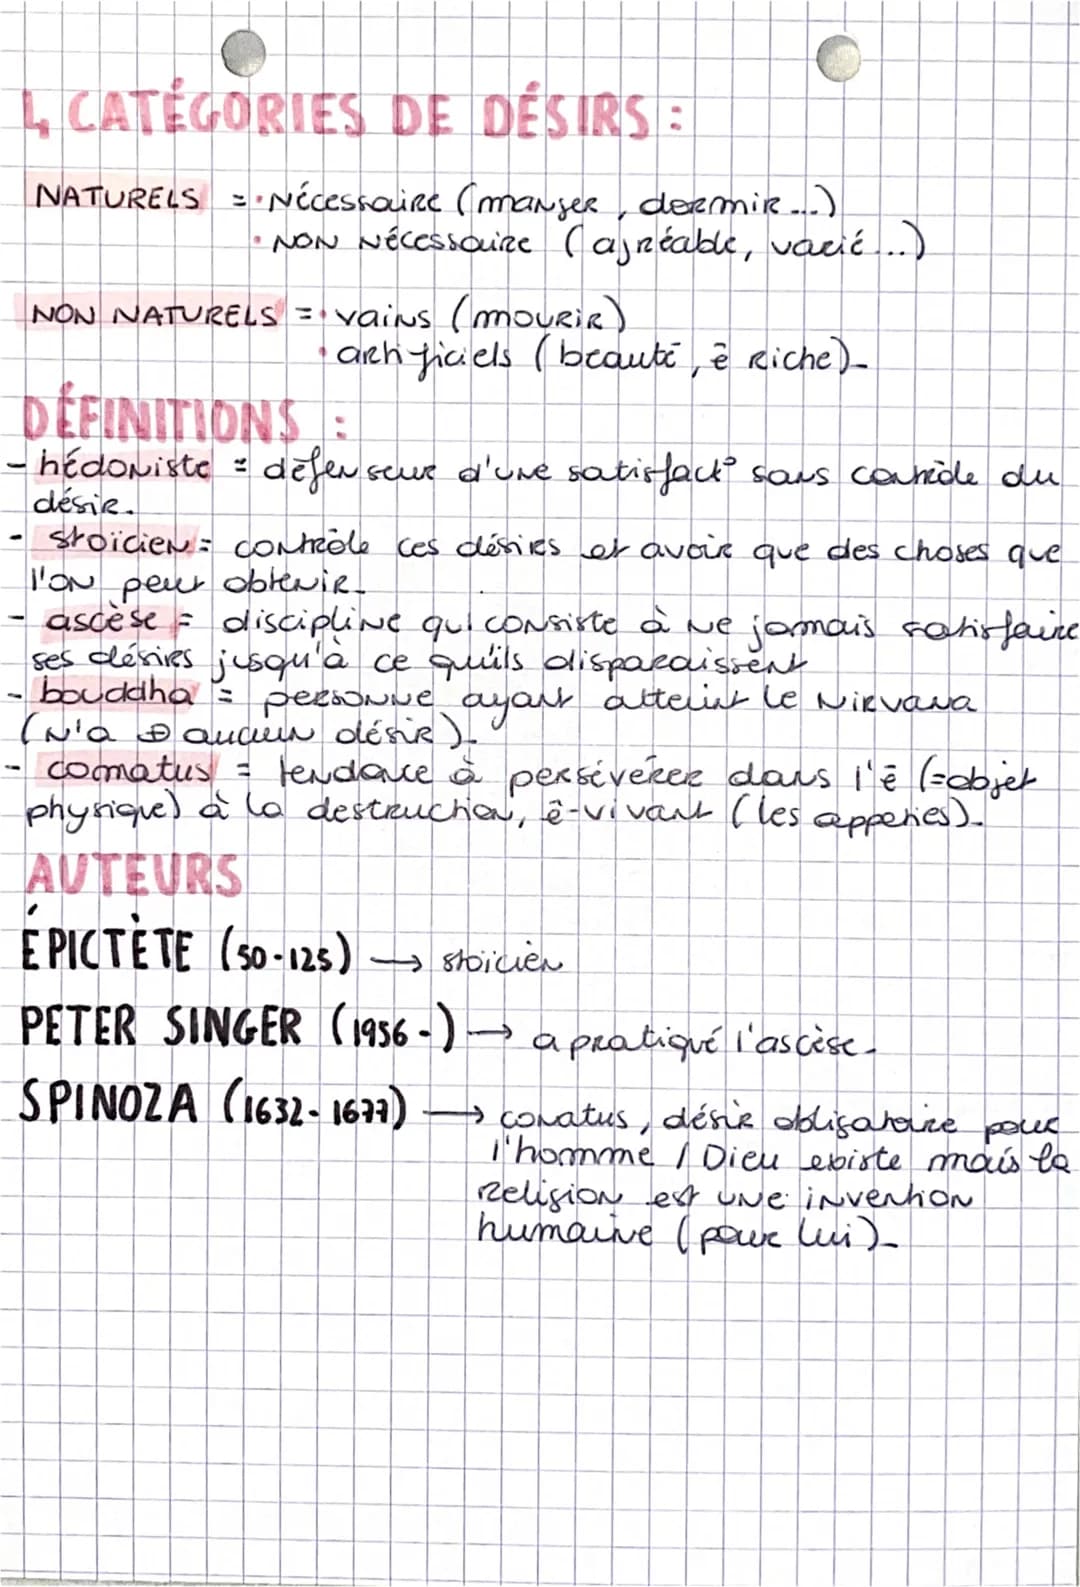 4 CATÉGORIES DE DÉSIRS :
NATURELS = • Nécessaire (manger, dormir...)
• NON Nécessaire (agréable, varié...)
NON NATURELS = • vains (mourir)
• artificiels (beauté, ê riche)_
DÉFINITIONS :
- hédoniste = défenseur d'une satisfact° sans contrôle du
désir.
- stoïcien = contrôle ces désirs et avoir que des choses que
l'on peut obtenir_
- ascèse = discipline qui consiste à ne jamais satisfaire
ses désirs jusqu'à ce qu'ils disparaissent
- bouddha = personne ayant atteint le Nirvana
(n'a ⊕ aucun désir)_
- comatus = tendance à persévérer dans l'ê (=objet
physique) à la destruction, ê-vivant (les apperies)_
AUTEURS
ÉPICTÈTE (50-125) → stoïcien
PETER SINGER (1956 -) → a pratiqué l'ascèse_
SPINOZA (1632- 1677) → conatus, désir obligatoire pour
l'homme / Dieu existe mais la
religion est une invention
humaine (pour lui)_